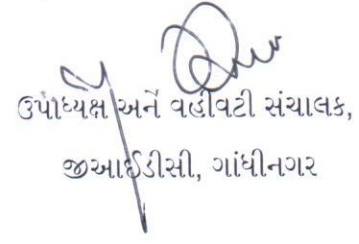 ઉપાધ્યક્ષ અને વહીવટી સંચાલક,
જીઆઈડીસી, ગાંધીનગર